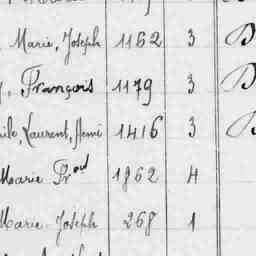 Marie, Joseph 1162 3 B
François 1179 3 B
Laurent, Remi 1416 3 B
Marie Frod 1862 4
Marie Joseph 268 1